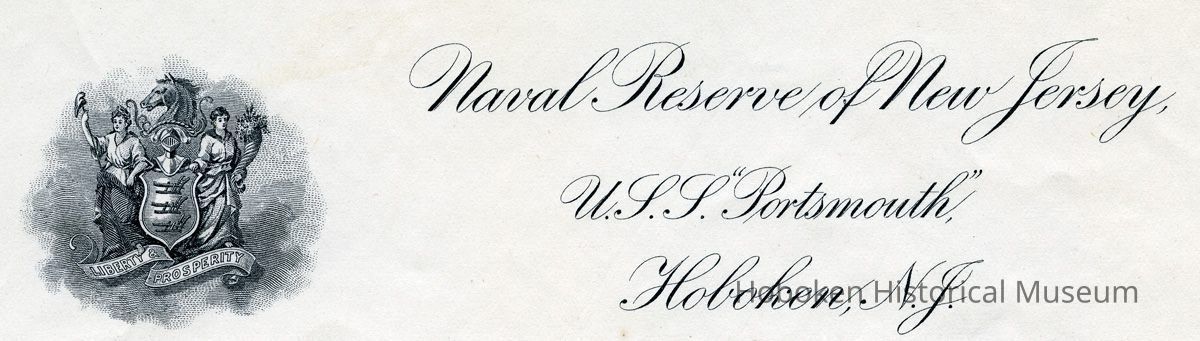 Naval Reserve of New Jersey,
U.S.S. "Portsmouth,"
Hoboken, N.J.
LIBERTY & PROSPERITY
Hoboken Historical Museum